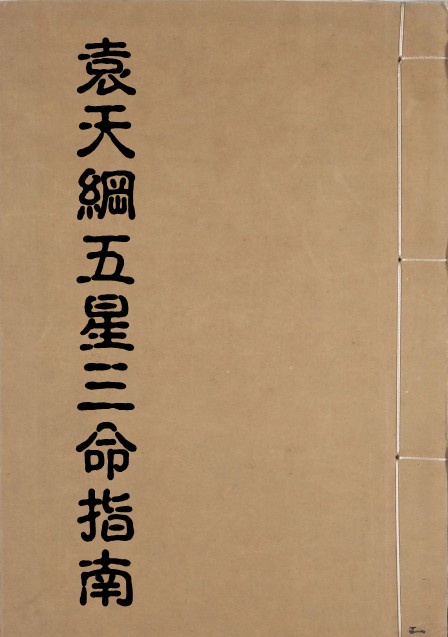 袁天綱五星三命指南